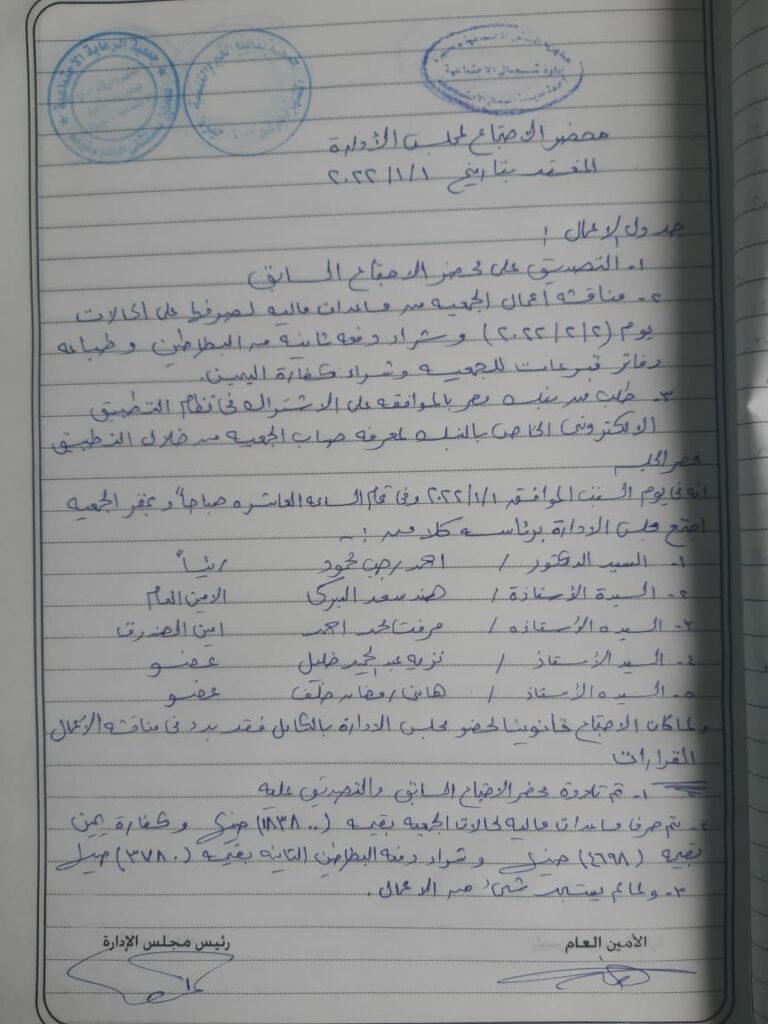 جمعية الرعاية الاجتماعية
إدارة شمال الاجتماعية
محضر الاجتماع لمجلس الأدارة
المنعقد بتاريخ ٢٠٢٢/١/١
جدول الاعمال :
١- التصديق على محضر الاجتماع السابق
٢- مناقشة اعمال الجمعيه من مساعدات ماليه لصرفها على الحالات
يوم (٢٠٢٢/٢/٢) وشراء دفعه ثانيه من البطاطين وطباعه
دفاتر تبرعات للجمعيه وشراء كفارة اليمين.
٣- طلب من بنك مصر بالموافقه على الاشتراك فى نظام التطبيق
الالكترونى الخاص بالبنك لمعرفه حساب الجمعيه من خلال التطبيق
محضر الجلسه
انه فى يوم السبت الموافق ٢٠٢٢/١/١ وفى تمام الساعه العاشره صباحاً وبمقر الجمعيه
اجتمع مجلس الادارة برئاسه كلا من :-
١- السيد الدكتور / احمد رجب محمود رئيساً
٢- السيدة الأستاذة / هند سعد الامين العام
٣- السيده الأستاذه / مرفت احمد امين الصندوق
٤- السيد الأستاذ / نزيه عبد الحميد خليل عضو
٥- السيده الأستاذ / هانى رمضان خلف عضو
ولما كان الاجتماع قانونيا لحضو مجلس الادارة بالكامل فقد بدء فى مناقشه الأعمال
القرارات
١- تم تلاوة محضر الاجتماع السابق والتصديق عليه
٢- تم صرف مساعدات ماليه لحالات الجمعيه بقيمه (١٨٣٨٠٠) جنيها وكفارة يمين
بقيمه (٤٦٩٨) جنيها وشراء دفعه البطاطين الثانيه بقيمه (٣٧٨٠) جنيها
٣- ولما لم يستجد شئ من الاعمال.
الأمين العام رئيس مجلس الإدارة